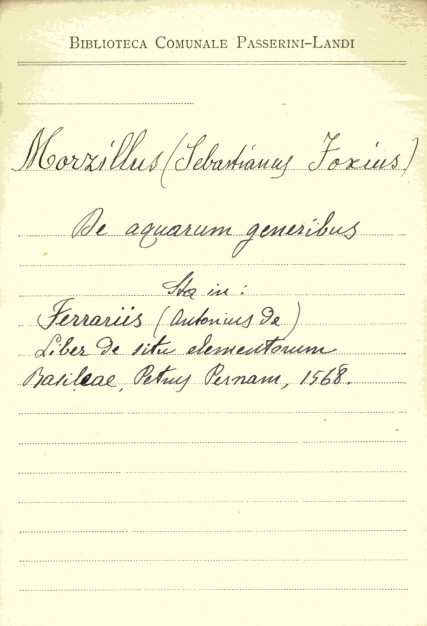 BIBLIOTECA COMUNALE PASSERINI-LANDI
Morzillus (Sebastianus Foxius)
De aquarum generibus
Sta in:
Ferrariis (Antonius De)
Liber de situ elementorum
Basileae, Petrus Pernam, 1568.